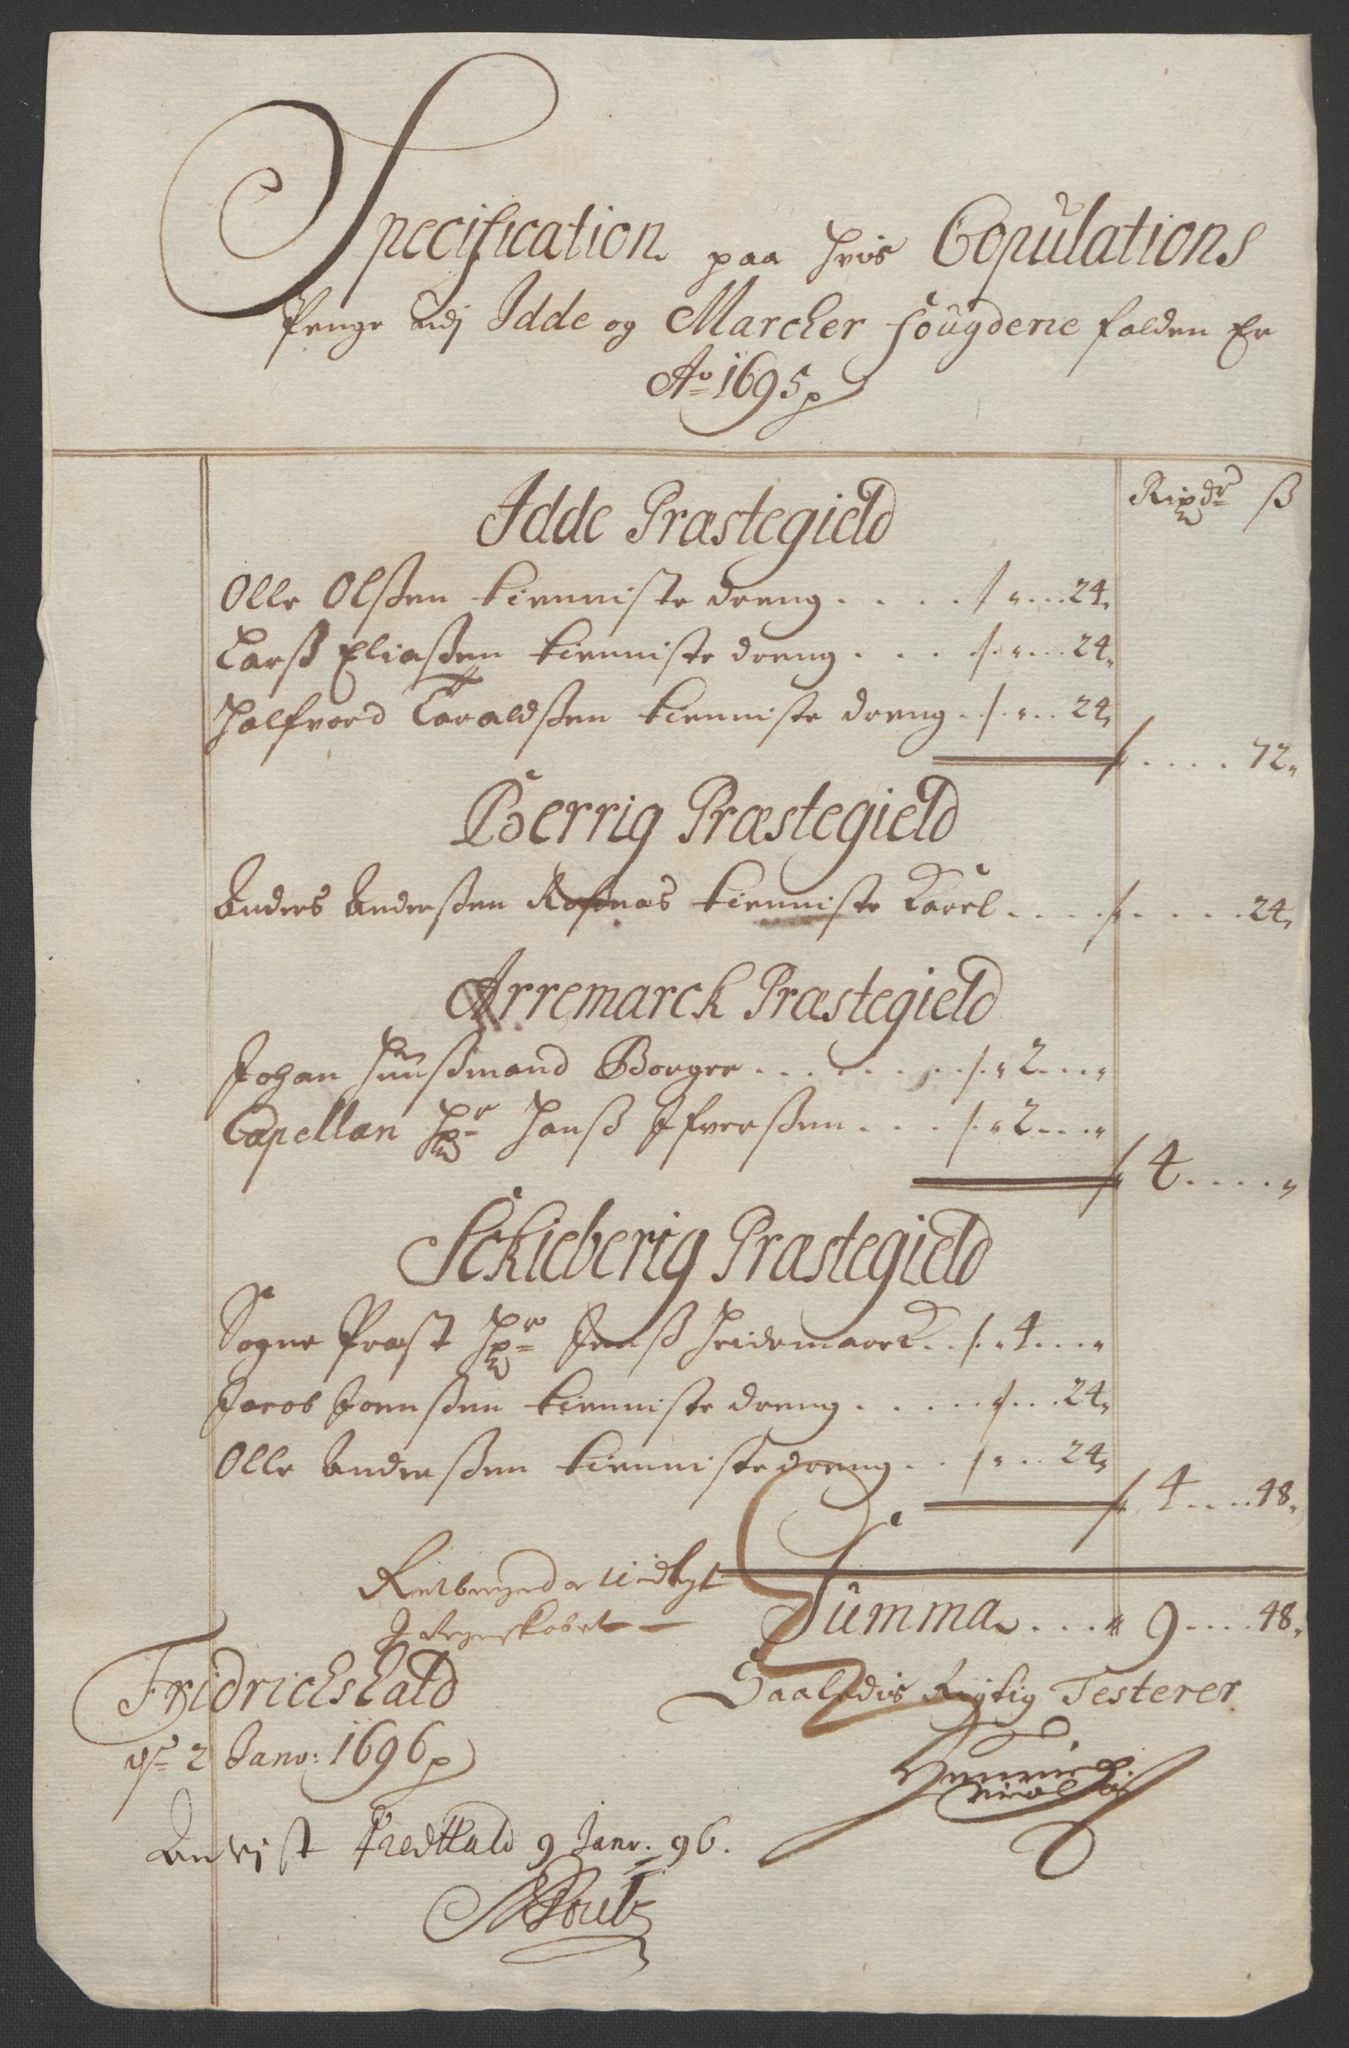 Specification paa hvis Copulations
Penge udj Idde og Marcker fougderie falden Er
Ao 1695
Rixdr ß
Idde Præstegield
Olle Olßen tienniste dreng . . . . 24
Larß Eliaßen tienniste dreng . . . . 24
Halfvord Taraldßen tienniste dreng . . . 24
72
Berrig Præstegield
Anders Anderßen tienniste Karel . . . . 24
Arremarck Præstegield
Johan Huußmand Borger . . . . 2 . . .
Capellan Hr Hanß Ifverßen . . . 2 . . .
4 . . . .
Sckieberig Præstegield
Sogne Præst Hr Jenß Heidemarck . . 4 . . .
Jacob Joenßen tienniste dreng . . . . 24
Olle Anderßen tienniste dreng . . . 24
4 . . . . 48
Summa . . . 9 . . . . 48
J Regenskabet
Fridrichshald
Saaledis Rigtig Testerer
2 Janv: 1696
Hennrich
An vist FredHald 9 Janv. 96.